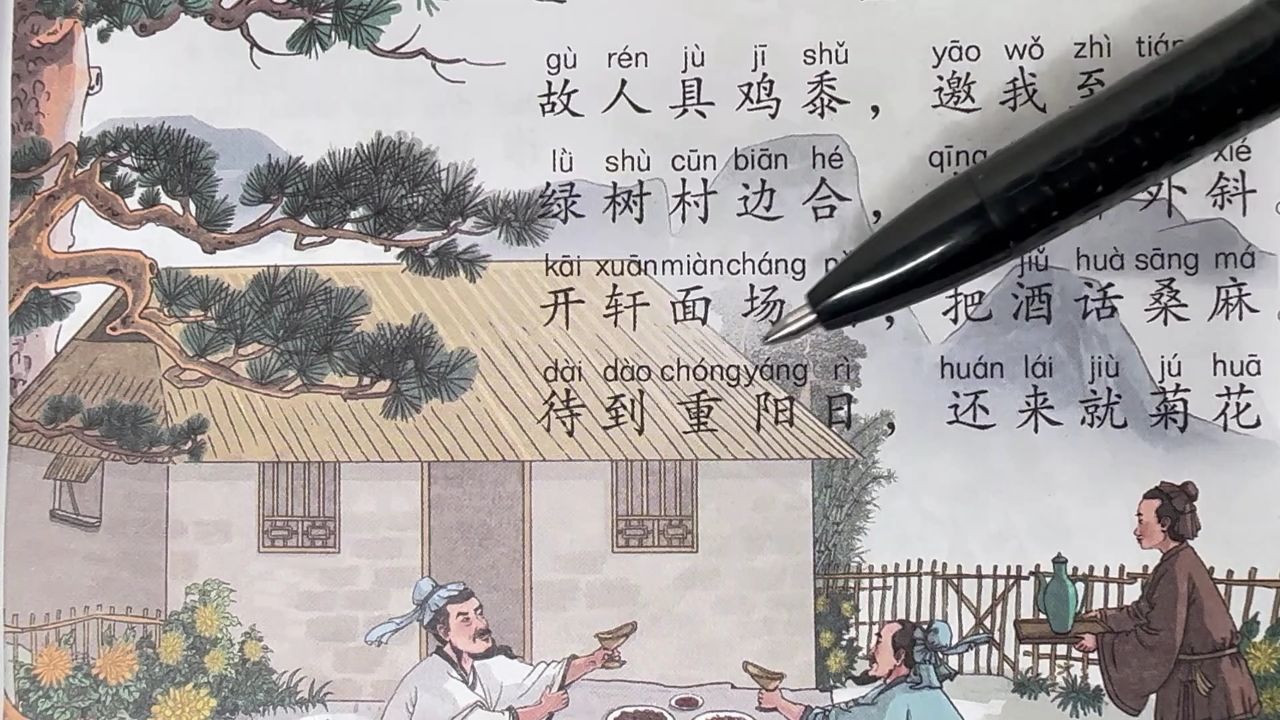 gù rén jù jī shǔ yāo wǒ zhì
故人具鸡黍，邀我至
lǜ shù cūn biān hé qīng xié
绿树村边合，外斜。
kāi xuān miàn cháng jiǔ huà sāng má
开轩面场，把酒话桑麻。
dài dào chóng yáng rì huán lái jiù jú huā
待到重阳日，还来就菊花